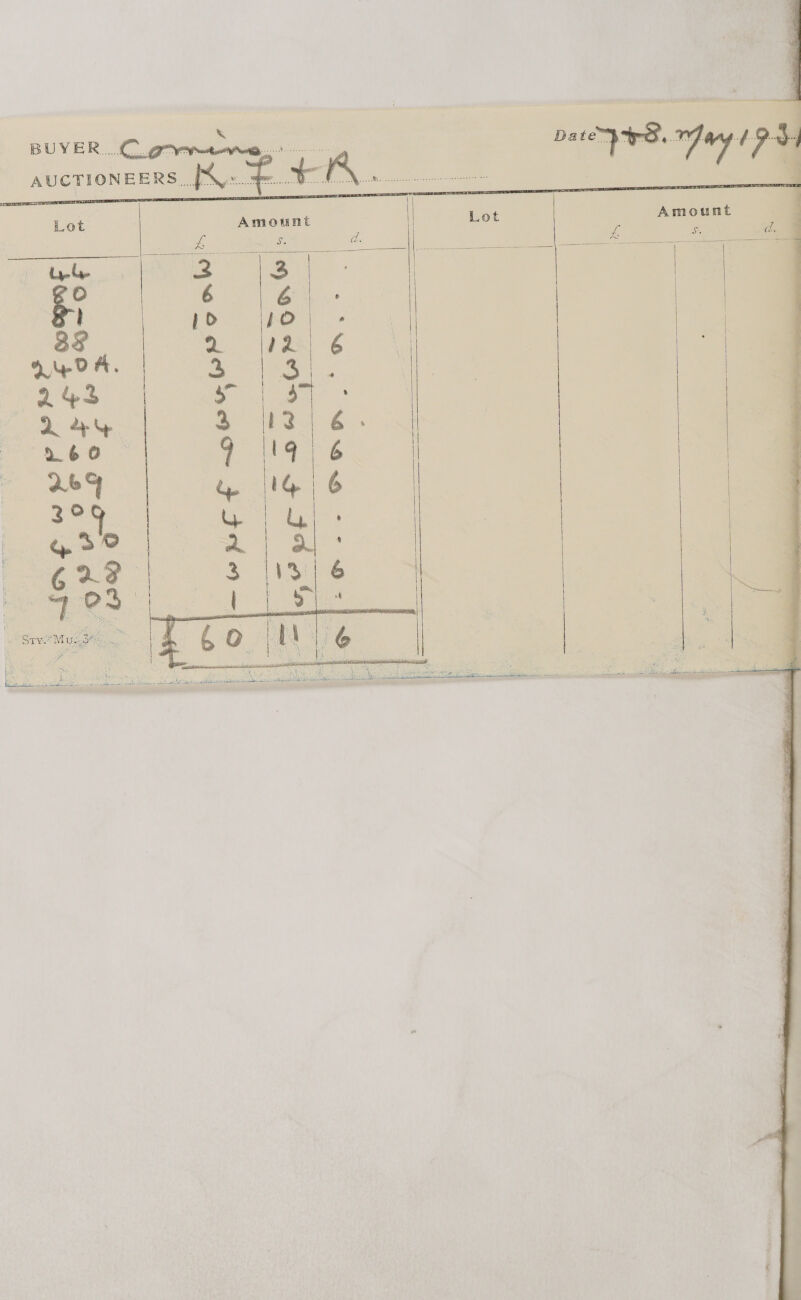 BUYER Date 7 + 8. May 1931
AUCTIONEERS K. F + R.
Lot Amount Lot Amount
£ s. d. £ s. d.
44 3 3 .
80 6 6 .
81 10 10 .
88 2 12 6
240A. 3 3 .
243 5 5 .
244 3 13 6.
260 9 19 6
269 4 14 6
309 4 4 .
430 2 2 .
628 3 13 6
703 1 5 "
£ 60 11 6